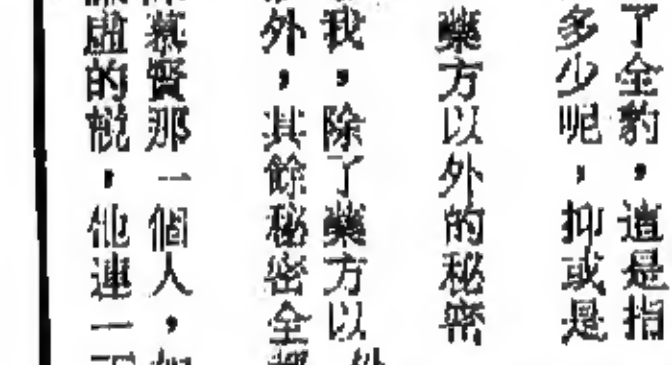 了全豹，這是指
多少呢，抑或是
藥方以外的秘密
我，除了藥方以外
外，其餘秘密全都
慕賢那一個人，如
虛的說，他連一